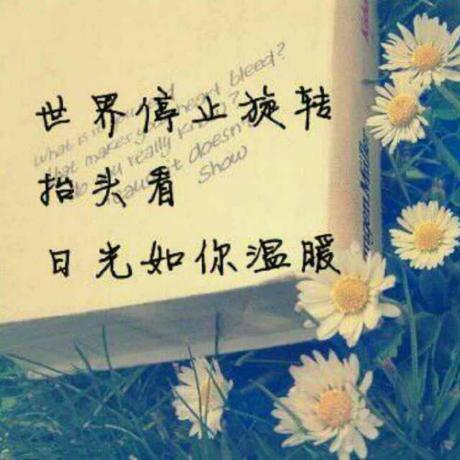 世界停止旋转
抬头看
日光如你温暖
what is
that makes your heart bleed?
do you really know?
cause it doesn't
show